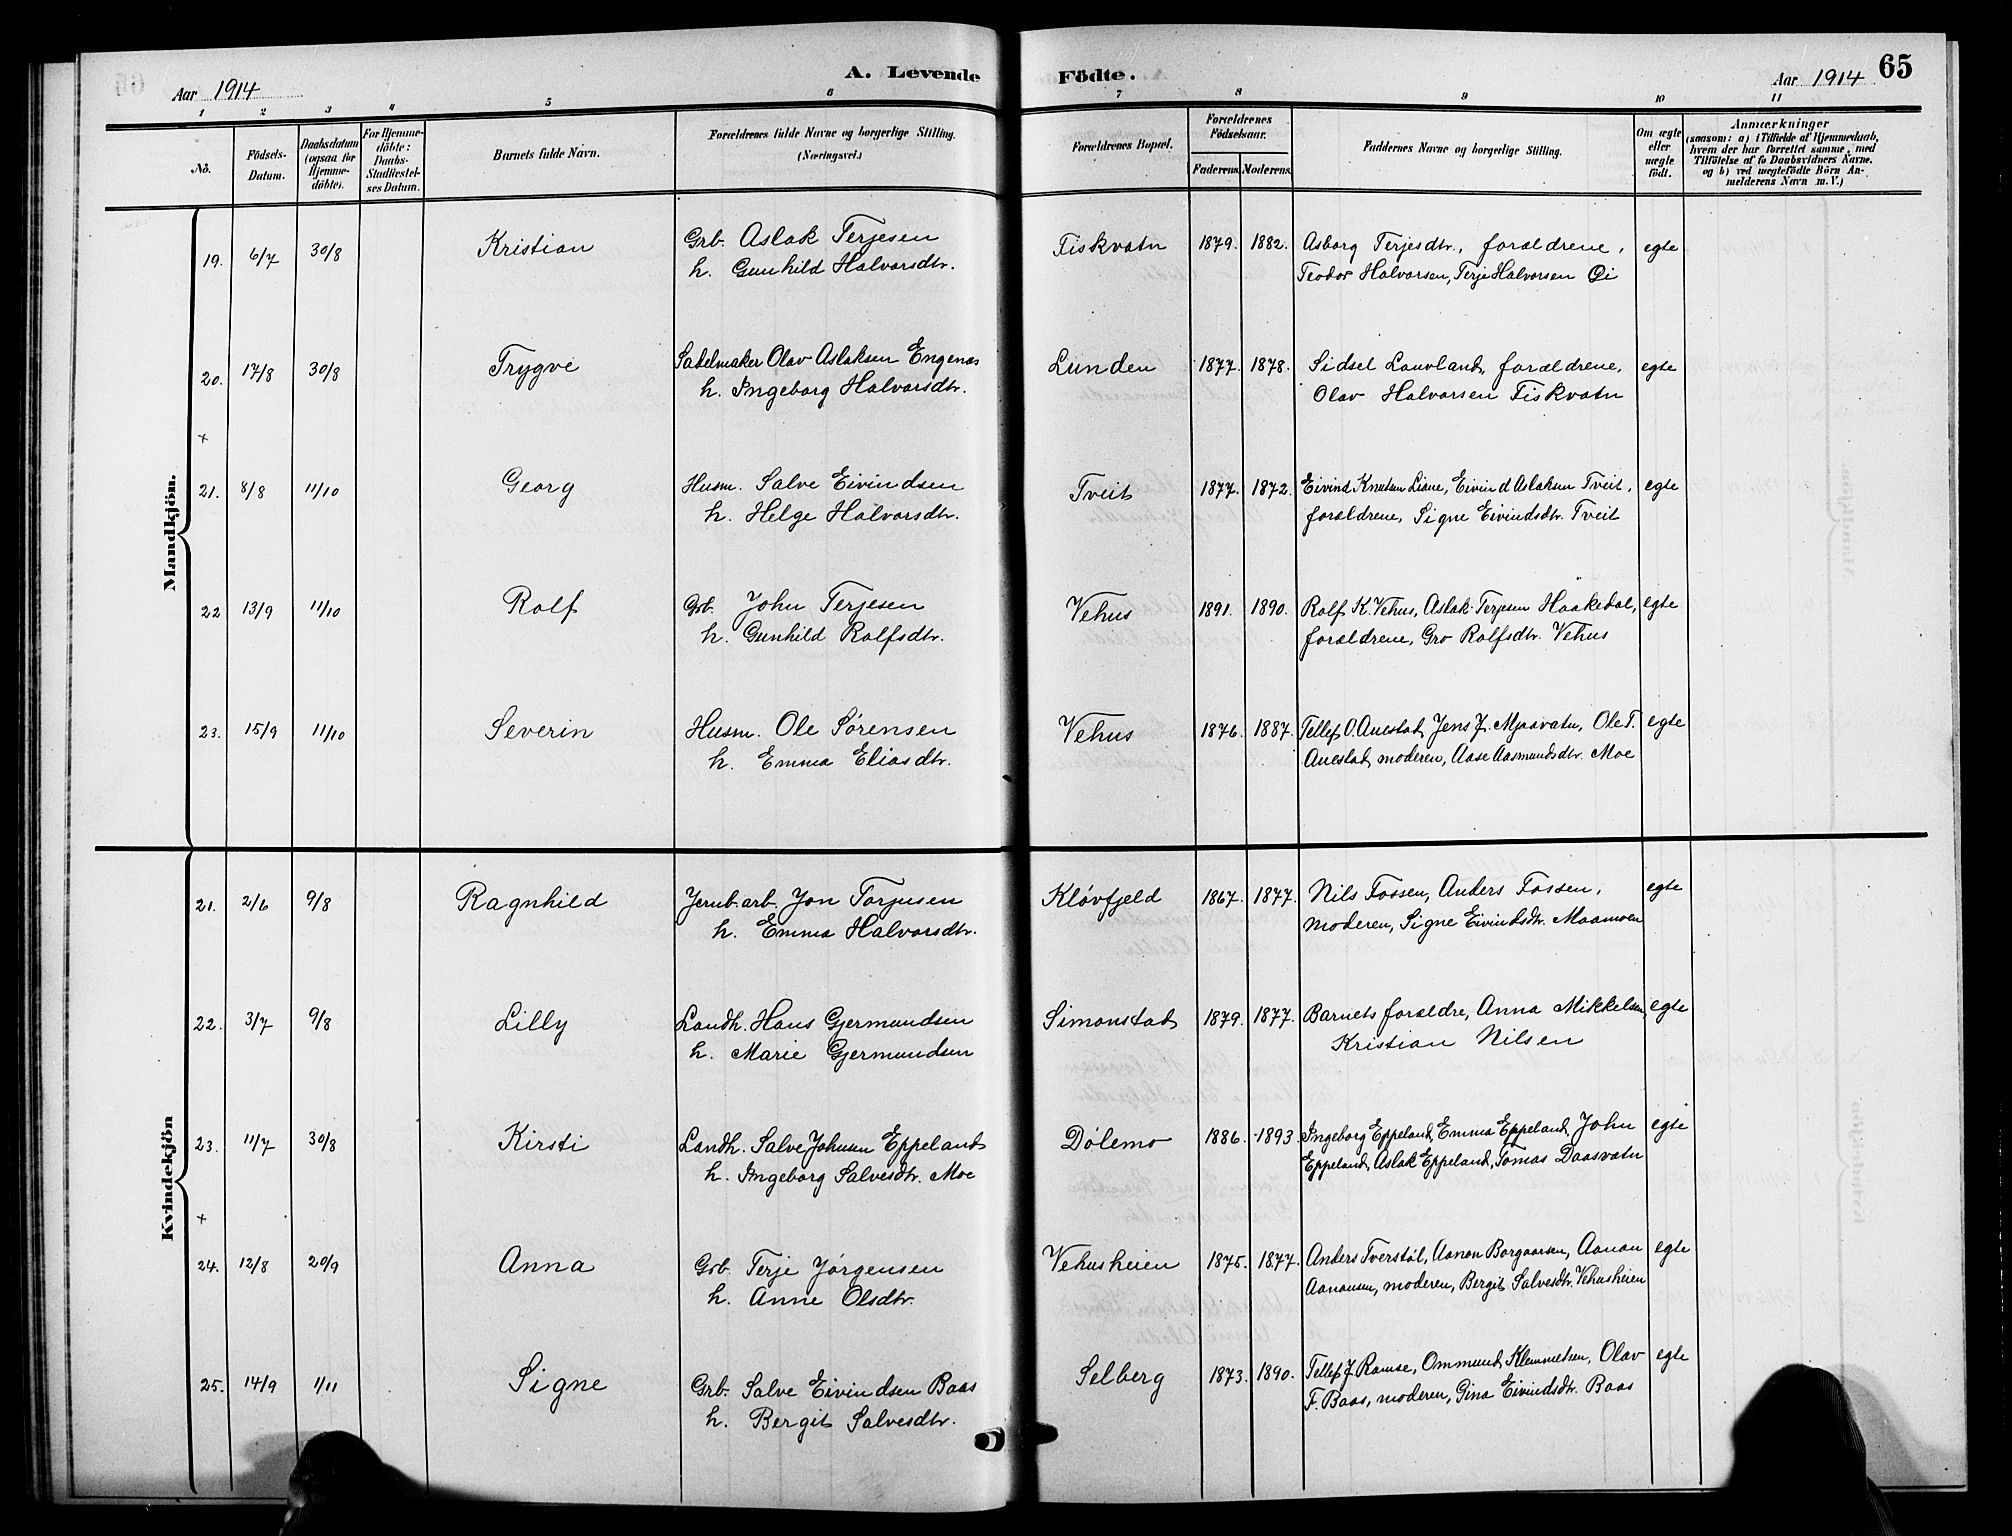 A. Levende Födte.
65
Aar 1914
Aar 1914
1 2 3 4 5 6 7 8 9 10 11
No.
Födsels-Datum.
Daabsdatum (ogsaa for Hjemmedöbte).
For Hjemmedöbte: Daabs-Stadfæstelses Datum.
Barnets fulde Navn.
Forældrenes fulde Navne og borgerlige Stilling. (Næringsvei.)
Forældrenes Bopæl.
Forældrenes Födselsaar.
Faderens. Moderens.
Faddernes Navne og borgerlige Stilling.
Om ægte eller uægte födt.
Anmærkninger
(saasom: a) i Tilfælde af Hjemmedaab, hvem der har forrettet samme, med Tilföielse af to Daabsvidners Navne, og b) ved uægtefödte Börn Anmelderens Navn m. V.)
Mandkjön.
19. 6/7 30/8 Kristian Grb. Aslak Terjesen Fiskvatn 1879. 1882. Asborg Terjesdtr., forældrene, egte
h. Gunhild Halvorsdtr. Teodor Halvorsen, Terje Halvorsen Øi
20. 17/8 30/8 Trygve Sadelmaker Olav Aslaksen Engenæs Lunden 1877. 1878. Sidsel Lauvland, forældrene, egte
h. Ingeborg Halvorsdtr. Olav Halvorsen Fiskvatn
+
21. 8/8 11/10 Georg Husm. Salve Eivindsen Tveit 1877. 1872. Eivind Knutsen Liane, Eivind Aslaksen Tveit, egte
h. Helge Halvorsdtr. forældrene, Signe Eivindsdtr. Tveit
22 13/9 11/10 Rolf Grb. John Terjesen Vehus 1891. 1890. Rolf K. Vehus, Aslak Terjesen Haakedal, egte
h. Gunhild Rolfsdtr. forældrene, Gro Rolfsdtr. Vehus
23. 15/9 11/10 Severin Husm. Ole Sørensen Vehus 1876. 1887. Tellef O. Auestad, Jens J. Mjaavatn, Ole T. egte
h. Emma Eliasdtr. Auestad, moderen, Aase Aasmundsdtr. Moe
Kvindekjön
21. 2/6 9/8 Ragnhild Jernb.arb. Jon Torjusen Kløvfjeld 1867. 1877. Nils Fossen, Anders Fossen, egte
h. Emma Halvorsdtr. moderen, Signe Eivindsdtr. Maamoen
22. 3/7 9/8 Lilly Landh. Hans Gjermundsen Simonstad 1879. 1877. Barnets forældre, Anna Mikkelsen, egte
h. Marie Gjermundsen Kristian Nilsen
23. 11/7 30/8 Kirsti Landh. Salve Johnsen Eppeland Dølemo 1886. 1893. Ingeborg Eppeland, Emma Eppeland, John egte
h. Ingeborg Salvesdtr. Moe Eppeland, Aslak Eppeland, Tomas Daasvatn
+
24. 12/8 20/9 Anna Grb. Terje Jørgensen Vehusheien 1875. 1877. Anders Tverstøl, Aanon Borgaarsen, Aanon egte
h. Anne Olsdtr. Aanonsen, moderen, Bergit Salvesdtr. Vehusheien
25. 14/9 1/11 Signe Grb. Salve Eivindsen Baas Selberg 1873. 1890. Tellef J. Ramse, Ommund Klemmetsen, Olav egte
h. Bergit Salvesdtr. F. Baas, moderen, Gina Eivindsdtr. Baas